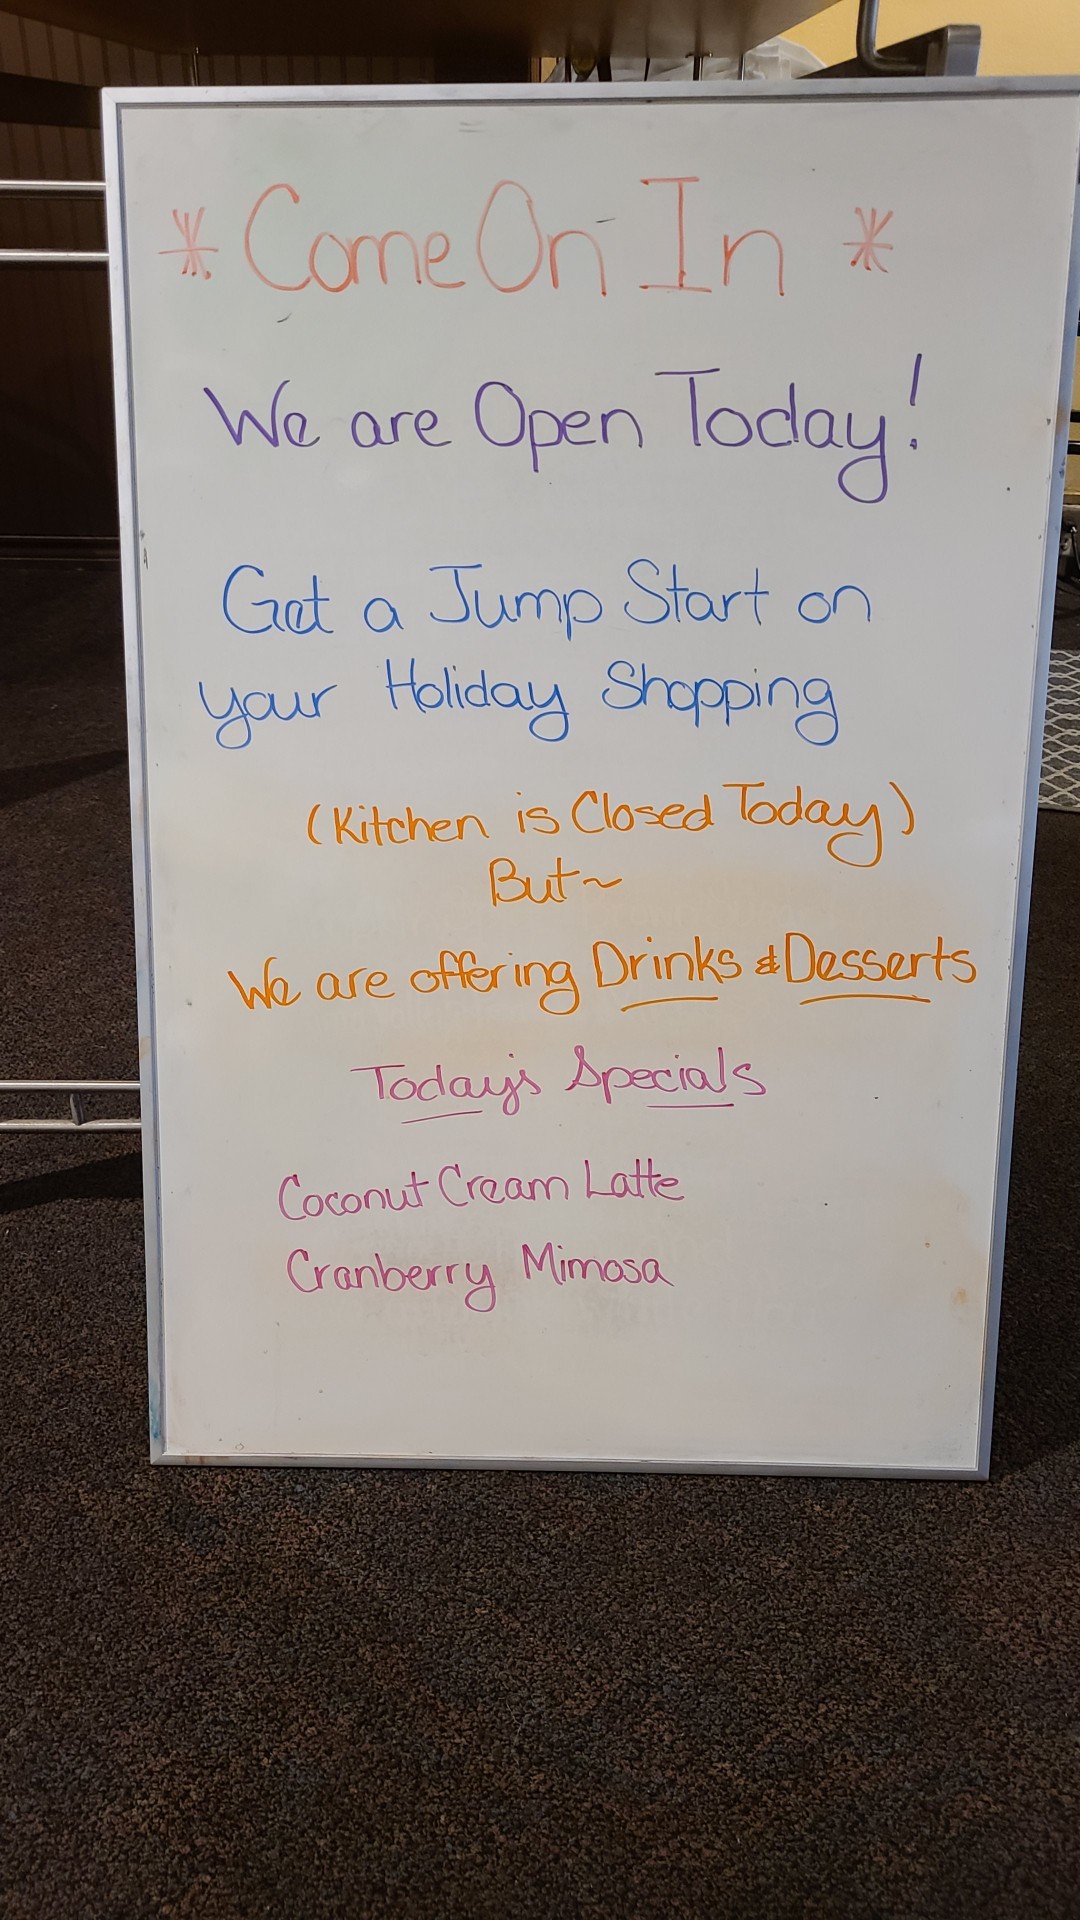 * Come On In *
We are Open Today!
Get a Jump Start on
your Holiday Shopping
(Kitchen is Closed Today)
But~
We are offering Drinks & Desserts
Today's Specials
Coconut Cream Latte
Cranberry Mimosa